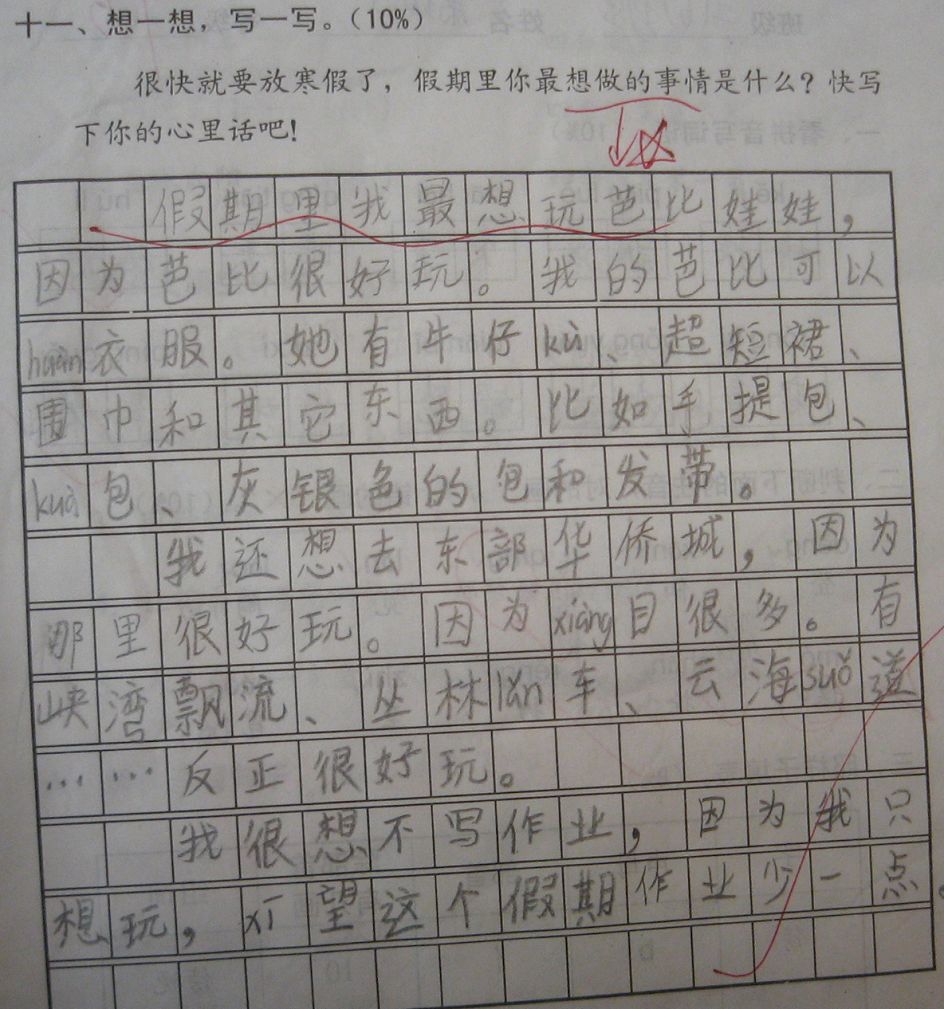 十一、想一想，写一写。（10%）
很快就要放寒假了，假期里你最想做的事情是什么？快写
下你的心里话吧！
假期里我最想玩芭比娃娃，
因为芭比很好玩。我的芭比可以
huàn衣服。她有牛仔kù、超短裙、
围巾和其它东西。比如手提包、
kuà包、灰银色的包和发带。
我还想去东部华侨城，因为
那里很好玩。因为xiàng目很多。有
峡湾飘流、丛林lǎn车、云海suǒ道
……反正很好玩。
我很想不写作业，因为我只
想玩，xī望这个假期作业少一点。